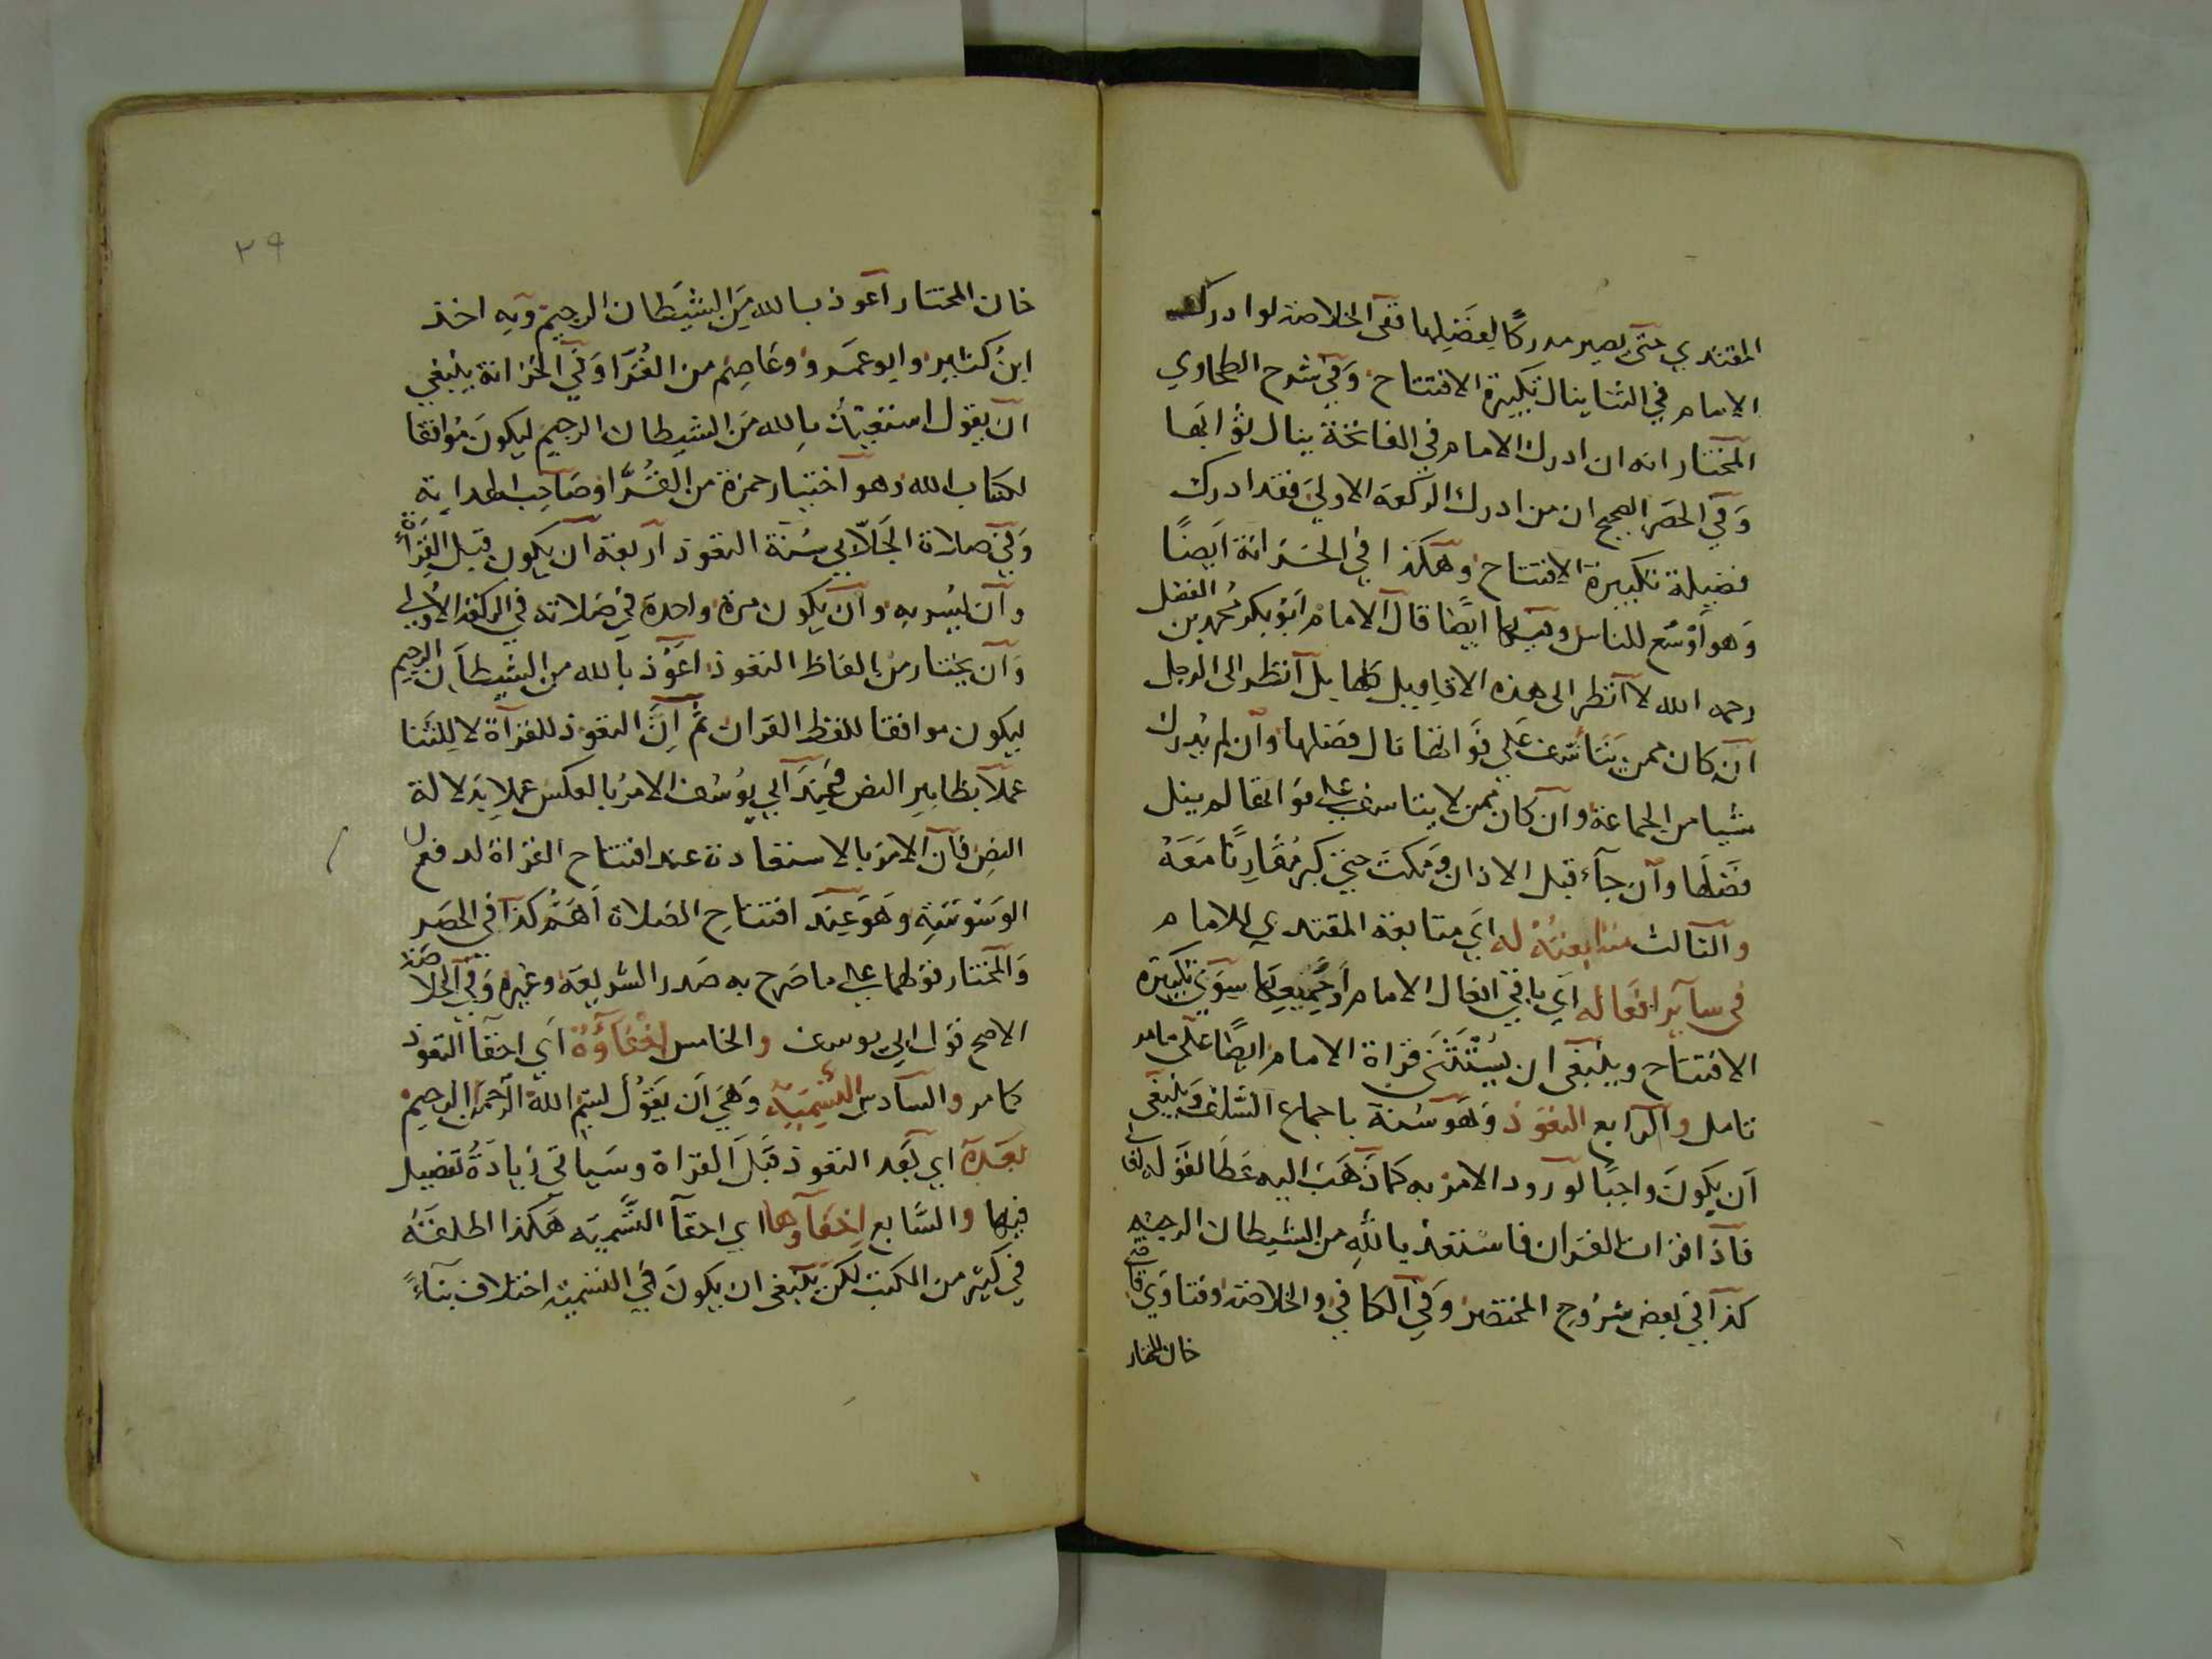 المقتدي حتى يصير مدركا لفضلها ففي الخلاصة لو ادرك
الامام في الثنا ينال تكبيرة الافتتاح وفي شرح الطحاوي
المختار انه ان ادرك الامام في الفاتحة ينال ثوابها
وفي الحصر الصحيح ان من ادرك الركعة الاولى فقد ادرك
فضيلة تكبيرة الافتتاح وهكذا في الخزانة ايضا
وهو اوسع للناس وفيها ايضا قال الامام ابو بكر محمد بن الفضل
رحمه الله لا انظر الى هذه الاقاويل كلها بل انظر الى الرجل
ان كان ممن يتاسف على فواتها نال فضلها وان لم يدرك
شيا من الجماعة وان كان ممن لا يتاسف على فواتها لم ينل
فضلها وان جاء قبل الاذان ومكث حتى كبر مقارنا معه
والثالث متابعته له اي متابعة المقتدي للامام
في ساير افعاله اي باقي افعال الامام او جميعها سوى تكبيرة
الافتتاح وينبغي ان يستثنى قراة الامام ايضا على ما مر
تامل والرابع التعوذ وهو سنة باجماع السلف وينبغي
ان يكون واجبا لورود الامر به كما ذهب اليه عطا لقوله تعالى
فاذا قرات القران فاستعذ بالله من الشيطان الرجيم
كذا في بعض شروح المختصر وفي الكافي والخلاصة وفتاوي قاضي
خان المختار
٢٩
خان المختار اعوذ بالله من الشيطان الرجيم وبه اخذ
ابن كثير وابو عمرو وعاصم من القرا وفي الخزانة ينبغي
ان يقول استعيذ بالله من الشيطان الرجيم ليكون موافقا
لكتاب الله وهو اختيار حمزة من القرا وصاحب الهداية
وفي صلاة الجلابي سنة التعوذ اربعة ان يكون قبل القراة
وان يسر به وان يكون مرة واحدة في صلاته في الركعة الاولى
وان يختار من الفاظ التعوذ اعوذ بالله من الشيطان الرجيم
ليكون موافقا للفظ القران ثم ان التعوذ للقراة لا للثنا
عملا بظاهر النص وعند ابي يوسف الامر بالعكس عملا بدلالة
النص فان الامر بالاستعاذة عند افتتاح القراة لدفع
الوسوسة وهو عند افتتاح الصلاة اهم كذا في الحصر
والمختار قولهما على ما صرح به صدر الشريعة وغيره وفي الخلاصة
الاصح قول ابي يوسف والخامس اخفاؤه اي اخفا التعوذ
كما مر والسادس التسمية وهي ان يقول بسم الله الرحمن الرحيم
بعده اي بعد التعوذ قبل القراة وسياتي زيادة تفصيل
فيها والسابع اخفاوها اي اخفا التسمية هكذا اطلقه
في كثير من الكتب لكن ينبغي ان يكون في التسمية اختلاف بناء